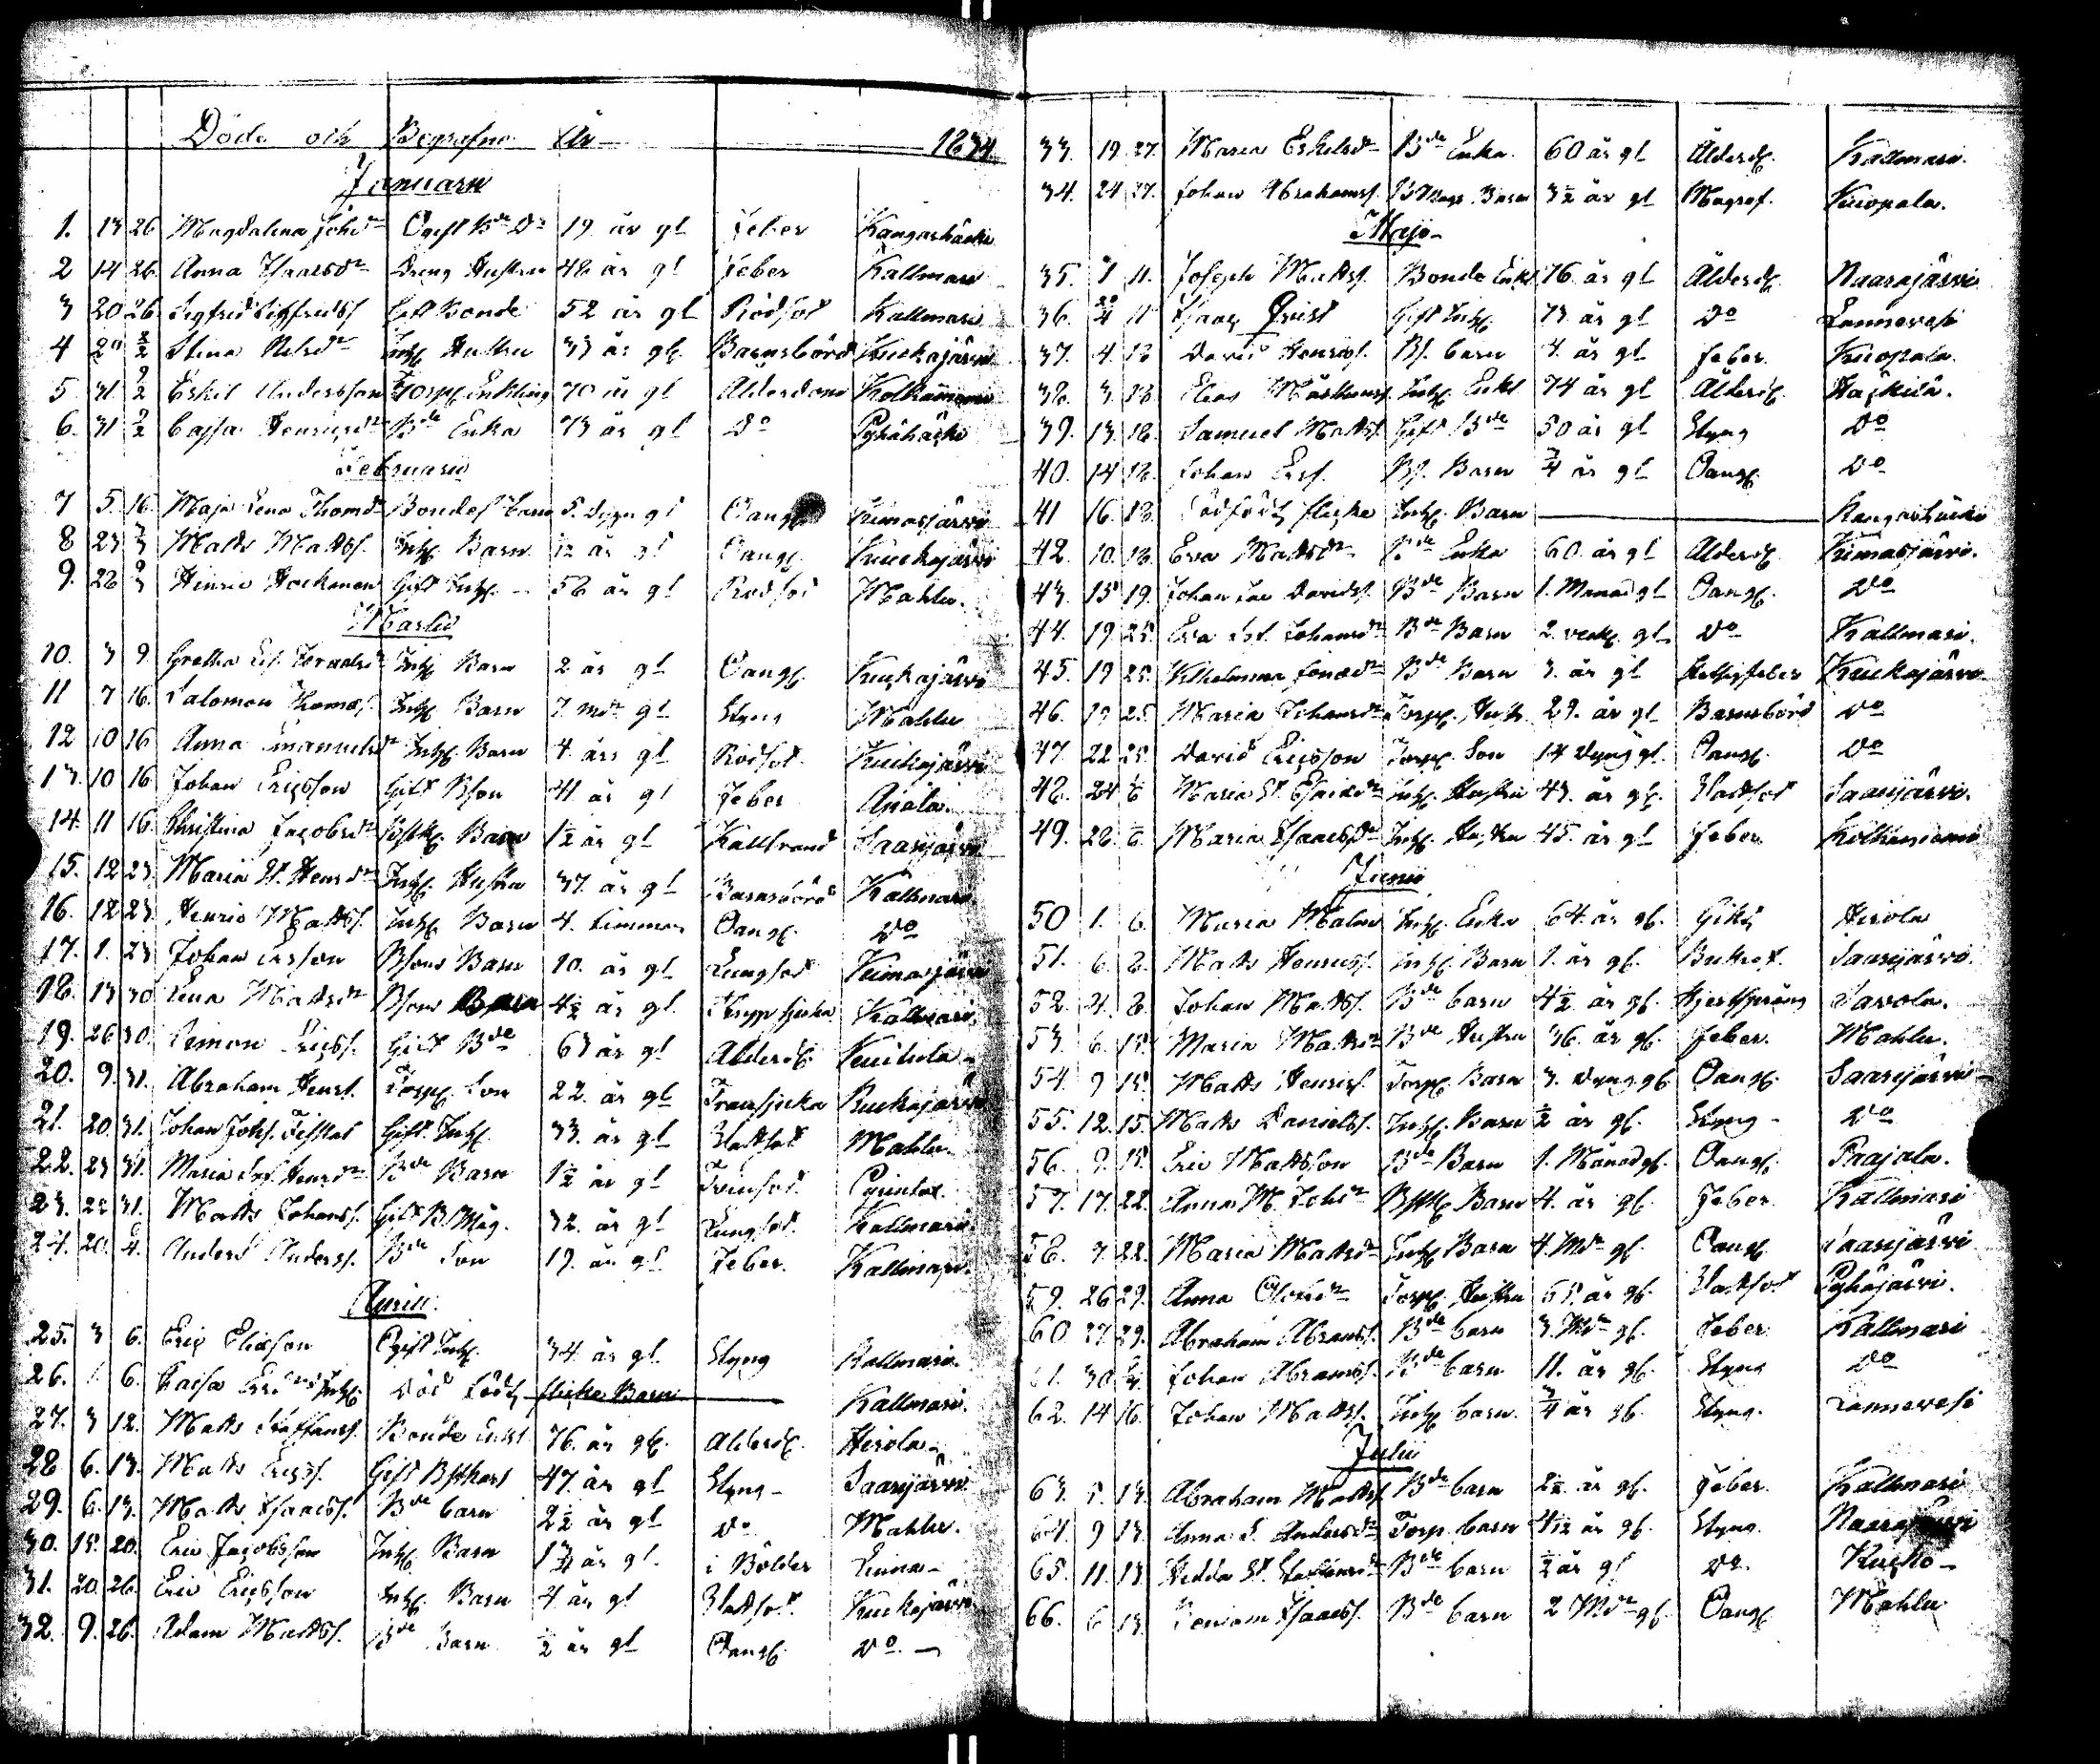 Döde och Begrafne År 1834
Januarii
1. 13 26 Magdalena Johsdr Ogift Bde Dr 19 år gl Feber Kangashäcki
2 14 26 Anna Isaacsdr Dreng Hustru 48 år gl Feber Kallmari
3 20 26 Sigfrid Sigfridss. Gift Bonde 52 år gl Rödsot Kallmari
4 20 2/2 Stina Nilsdr Inh. Hustru 33 år gl. Barnsbörd Kuckajärvi
5. 31. 9/2 Eskil Andersson Torp. Enkling 70 år gl Ålderdom Kolkanniemi
6. 31 9/2 Cajsa Henricsdr Bde Enka 73 år gl Do Pyhähäcki
Februarii
7 5. 16. Maja Lena Thomdr Bondes barn 5. Dygn gl Oang. Kimasjärvi
8 23 2/3 Matts Mattss. Inh. Barn 1/2 år gl Oang. Kuckajärvi
9. 28 9/3 Henric Hockanen Gift Inh. 58 år gl Rödsot Mahlu.
Martii
10. 3 9. Gretha Inh. Barn 2 år gl Oang. Kuckajärvi
11 7 16. Salomon Thomas. Inh. Barn 7. mdr gl Styng Mahlu
12 10 16 Anna Emanuelsdr Inh. Barn 4. års gl Rödsot. Kuckajärvi
13. 10 16 Johan Ericsson Gift Bson 41 år gl Feber Apala.
14. 11 16. Christina Jacobsdr Barn 1/2 år gl Kallbrand Saarijärvi
15. 12 23. Maria St. Hensdr Inh. Hustru 37. år gl Barnsbörd Kallmari
16. 12 23. Henric Mattss. Inh. Barn 4. timmar Oang. Do
17. 1. 23 Johan Ersson Bsons Barn 10. år gl Lungsot Kimasjärvi
18. 13 30 Lena Mattsdr Bsons Barn 4 1/2 år gl. Kallmari.
19. 26 30. Simon Ericss. Gift Bde 63 år gl Ålderd. Kuitula
20. 9. 31. Abraham Henrs. Torp. Son 22. år gl Transjuka Kuckajärvi
21. 20. 31. Johan Johs. Gift. Inh. 33. år gl Bladsot Mahlu.
22. 23 31. Maria Hensdr Bde Barn 1 1/2 år gl Tvinsot.
23. 22 31. Matts Johanss. Gift B Måg. 32. år gl Lungsot. Kallmari.
24. 20. 6/4. Anders Anderss. Bde Son 19. år gl Feber. Kallmari.
Aprill.
25. 3 6. Eric Eliasson Ogift Inh. 34. år gl. Styng Kallmari.
26. 6. Cajsa Inh. Död född flicke Barn Kallmari.
27. 3 12. Matts Staffanss. Bonde Enkl. 76. år gl. Ålderd. Hirola
28 6. 13. Matts Ericss. Gift 47. år gl Styng Saarijärvi
29. 6. 13. Matts Isaacss. Bde barn 2 1/2 år gl Do Mahlu.
30. 15. 20. Eric Jacobsson Inh. Barn 1 3/4 år gl. i Bölder Linna
31. 20. 26. Eric Ericsson Inh. Barn 4 år gl Bladsot. Kuckajärvi
32. 9. 26. Adam Mattss. Bde Barn 1/2 år gl Oang. Do.
33. 19. 27. Maria Eskelsdr Bde Enka. 60 år gl Ålderd. Kallmari.
34. 24 27. Johan Abrahamss. B Mågs Barn 3 1/2 år gl Magref. Kuopala.
Maji
35. 1 11. Joseph Mattss. Bonde Enkl 76. år gl Ålderd. Naarajärvi
36. 20/4 11 Isaac Qvist Gift Inh. 73. år gl Do Lannevesi
37. 4. 18 David Henricss. Bs. barn 4. år gl Feber. Kuopala.
38. 3. 18 Elias Mårtenss. Inh. Enkl 74 år gl Ålderd. Häckilä.
39. 13. 18. Samuel Mattss. Gift Bde 50 år gl Styng Do
40. 14 18. Johan Erss. Bs. Barn 3/4 år gl Oang. Do
41 16. 18. Dödfödd flicka Inh. Barn Kangashäcki
42. 10. 18. Eva Mattsdr Bde Enka 60. år gl Ålderd. Kimasjärvi.
43. 15 19. Johan Davidss. Bde Barn 1. Månad gl Oang. Do
44. 19. 25. Eva Johansdr Bde Barn 2. veck. gl Do Kallmari.
45. 19 25. Vilhelmina Jonædr Bde Barn 3. år gl Hetsigfeber Kuckajärvi
46. 19 25. Maria Johansdr Torp. Hustr. 29. år gl Barnsbörd Do
47. 22 25. David Ericsson Torp. Son 14 Dygn gl. Oang. Do
48. 24 1/6 Maria St. Inh. Hustru 43. år gl. Bladsot Saarijärvi.
49. 28. 1/6. Maria Isaacsdr Inh. Hustru 45. år gl Feber Kolkanniemi
Junii
50 1. 6. Maria Malm Inh. Enka 64. år gl. Gikt Hirola
51. 6. 8. Matts Henricss. Inh. Barn 1. år gl. Saarijärvi.
52. 4. 8. Johan Mattss. Bde barn 4 1/2 år gl. Hjertsprång Tavola.
53. 6. 15. Maria Mattsdr Bde Hustru 36. år gl. Feber. Mahlu.
54. 9 15. Matts Henricss. Torp. Barn 3. dygn gl Oang. Saarijärvi
55. 12. 15. Matts Danielss. Inh. Barn 1/2 år gl. Styng Do
56. 9. 15. Eric Mattsson Bde Barn 1. Månad gl. Oang. Paajala.
57. 17. 22. Anna M. Johsdr Barn 4. år gl. Feber. Kallmari
58. 7. 22. Maria Mattsdr Inh. Barn 4. Mdr gl. Oang. Saarijärvi
59. 26 29. Anna Olofsdr Torp. Hustru 65. år gl. Bladsot Pyhäjärvi.
60. 27. 29. Abraham Abramss. Bde barn 3. Mdr gl. Feber Kallmari
61. 30 6/7 Johan Abramss. Bde barn 11. år gl. Styng Do
62. 14 16. Johan Mattss. Inh. barn. 3/4 år gl. Styng. Lannevesi
Julii
63. 5. 13. Abraham Mattss. Bde barn 2 1/2 år gl. Feber. Kallmari
64. 9 13. Anna S. Andersdr Torp. barn år gl. Styng. Naarajärvi
65. 11. 13. Hedda St. Bde barn 1/2 år gl Do. Kucko
66. 6 13. Isaacss. Bde barn 2 Mdr gl. Oang. Mahlu